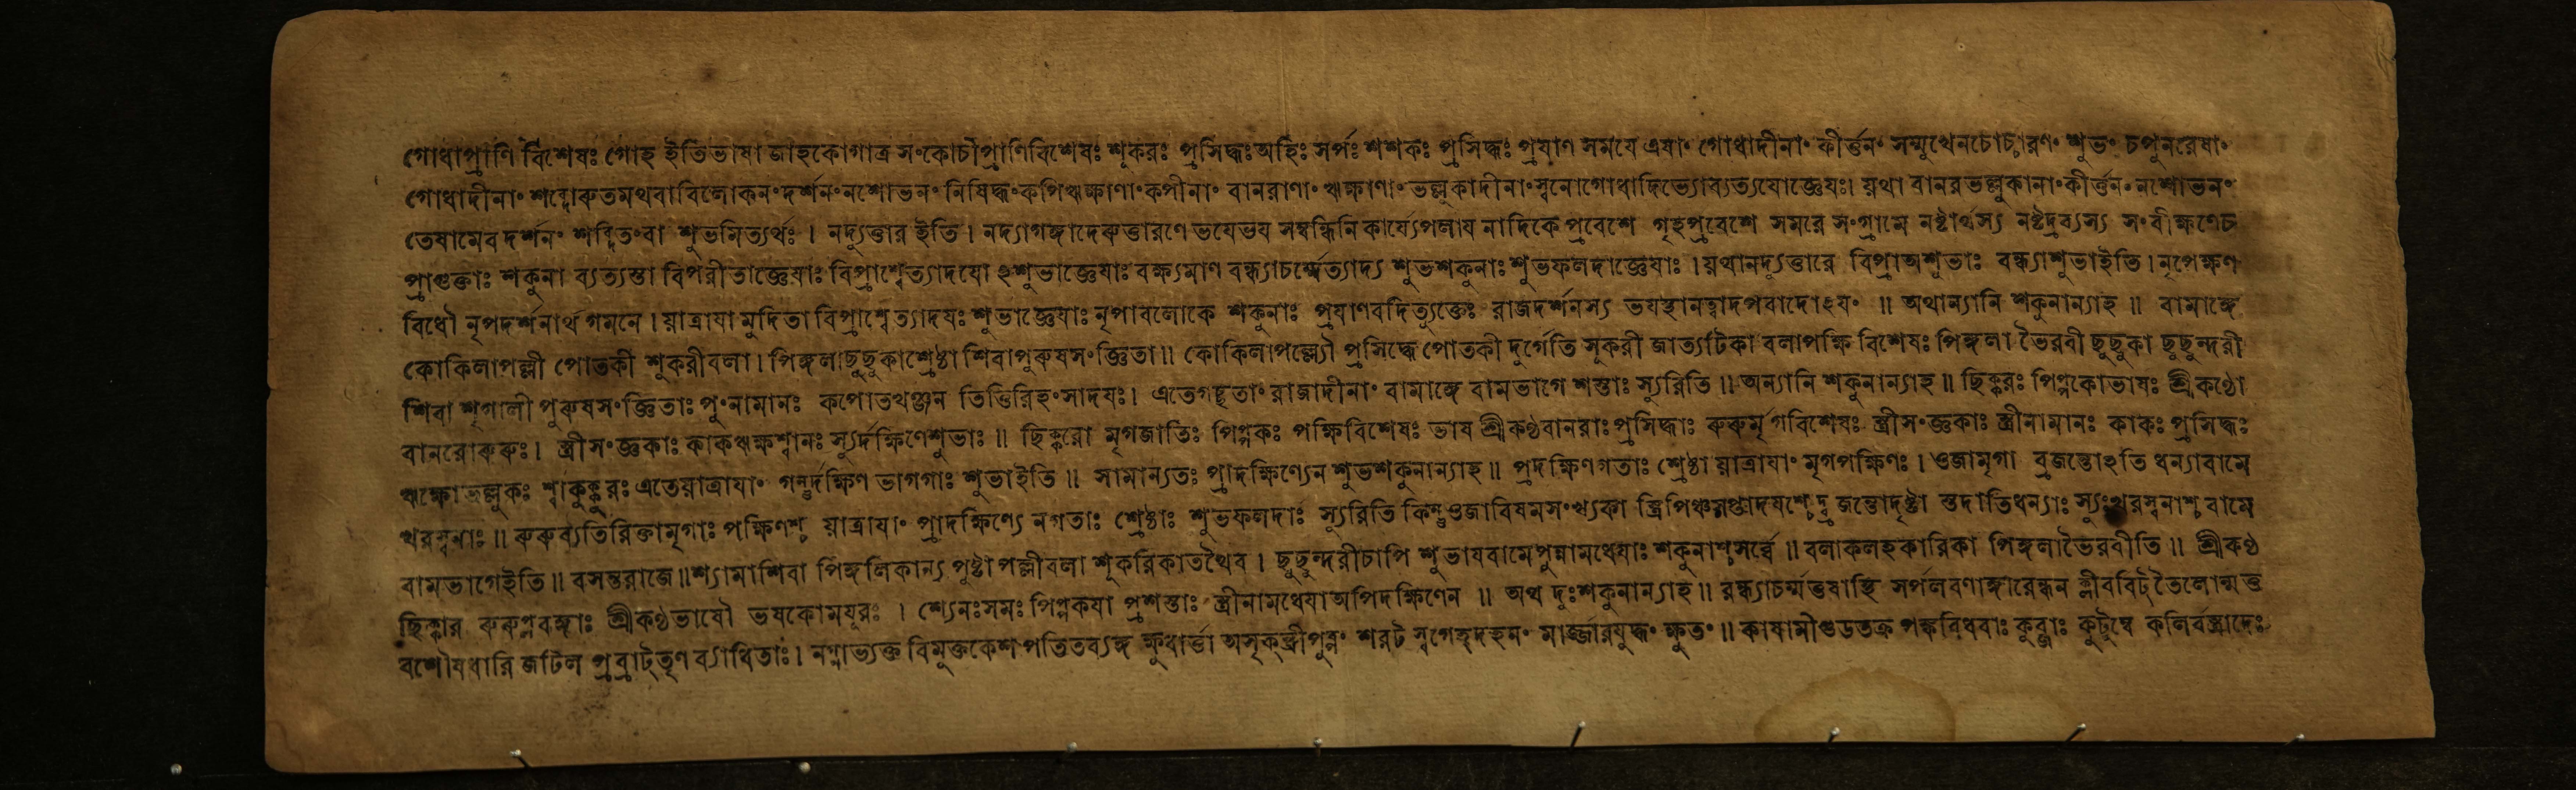 গোধাপ্রাণি বিশেষঃ গোহ ইতিভাষা জাহকোগাত্র সংকোচীপ্রাণিবিশেষঃ শূকরঃ প্রসিদ্ধঃ অহিঃ সর্পঃ শশকঃ প্রসিদ্ধঃ প্রযাণ সমযে এষাং গোধাদীনাং কীর্ত্তনং সন্মুখেনচোচ্চারণং শুভং চপুনরেষাং
গোধাদীনাং শব্দোরুতমথবাবিলোকনং দর্শনং নশোভনং নিষিদ্ধং কপিঋক্ষাণাং কপীনাং বানরাণাং ঋক্ষাণাং ভল্লুকাদীনাং স্বনোগোধাদিভ্যোব্যত্যযোজ্ঞেযঃ। য়থা বানরভল্লুকানাং কীর্ত্তনং নশোভনং
তেষামেব দর্শনং শব্দিতংবা শুভমিত্যর্থঃ । নদ্যুত্তার ইতি । নদ্যাগঙ্গাদেরুত্তারণে ভযেভয সম্বন্ধিনি কার্য্যেপলায নাদিকে প্রবেশে গৃহপ্রবেশে সমরে সংগ্রামে নষ্টার্থস্য নষ্টদ্রব্যস্য সংবীক্ষণেচ
প্রাগুক্তাঃ শকুনা ব্যত্যস্তা বিপরীতাজ্ঞেযাঃ বিপ্রাশ্বেত্যাদযো ঽশুভাজ্ঞেযাঃ বক্ষ্যমাণ বন্ধ্যাচর্ম্মেত্যাদ্য শুভশকুনাঃ শুভফলদাজ্ঞেযাঃ । য়থানদ্যুত্তারে বিপ্রাঅশুভাঃ বন্ধ্যাশুভাইতি । নৃপেক্ষণ
বিধৌ নৃপদর্শনার্থ গমনে । য়াত্রাযা মুদিতা বিপ্রাশ্বেত্যাদযঃ শুভাজ্ঞেযাঃ নৃপাবলোকে শকুনাঃ প্রযাণবদিত্যুক্তেঃ রাজদর্শনস্য ভযস্থানত্বাদপবাদোঽযং ॥ অথান্যানি শকুনান্যাহ ॥ বামাঙ্গে
কোকিলাপল্লী পোতকী শুকরীবলা । পিঙ্গলাছুছুকাশ্রেষ্ঠা শিবাপুরুষসংজ্ঞিতা ॥ কোকিলাপল্ল্যৌ প্রসিদ্ধে পোতকী দুর্গেতি সূকরী জাত্যটিকা বলাপক্ষি বিশেষঃ পিঙ্গলা ভৈরবী ছুছুকা ছুছুন্দরী
শিবা শৃগালী পুরুষসংজ্ঞিতাঃ পুংনামানঃ কপোতখঞ্জন তিত্তিরিহংসাদযঃ। এতেগচ্ছতাং রাজাদীনাং বামাঙ্গে বামভাগে শস্তাঃ স্যুরিতি ॥ অন্যানি শকুনান্যাহ ॥ ছিক্করঃ পিপ্পকোভাষঃ শ্রীকণ্ঠো
বানরোরুরুঃ। স্ত্রীসংজ্ঞকাঃ কাকঋক্ষশ্বানঃ স্যুর্দক্ষিণেশুভাঃ ॥ ছিক্করো মৃগজাতিঃ পিপ্পকঃ পক্ষিবিশেষঃ ভাষ শ্রীকণ্ঠবানরাঃ প্রসিদ্ধাঃ রুরুর্মৃগবিশেষঃ স্ত্রীসংজ্ঞকাঃ স্ত্রীনামানঃ কাকঃ প্রসিদ্ধঃ
ঋক্ষোভল্লুকঃ শ্বাকুক্কুরঃ এতেয়াত্রাযাং গন্তুর্দক্ষিণ ভাগগাঃ শুভাইতি ॥ সামান্যতঃ প্রাদক্ষিণ্যেন শুভশকুনান্যাহ ॥ প্রদক্ষিণগতাঃ শ্রেষ্ঠা য়াত্রাযাং মৃগপক্ষিণঃ । ওজামৃগা ব্রজন্তোঽতি ধন্যাবামে
খরস্বনাঃ ॥ রুরুব্যতিরিক্তামৃগাঃ পক্ষিণশ্চ য়াত্রাযাং প্রাদক্ষিণ্যে নগতাঃ শ্রেষ্ঠাঃ শুভফলদাঃ স্যুরিতি কিন্তুওজাবিষমসংখ্যকা স্ত্রিপিঞ্চসপ্তাদযশ্চেদ্ব্র জন্তোদৃষ্টা স্তদাতিধন্যাঃ স্যুঃখরস্বনাশ্চ বামে
বামভাগেইতি ॥ বসন্তরাজে ॥ শ্যামাশিবা পিঙ্গলিকান্য পুষ্টা পল্লীবলা শূকরিকাতথৈব । ছুছুন্দরীচাপি শুভাযবামেপুন্নামধেযাঃ শকুনাশ্চসর্ব্বে ॥ বলাকলহকারিকা পিঙ্গলাভৈরবীতি ॥ শ্রীকণ্ঠ
ছিক্কার রুরুপ্লবঙ্গাঃ শ্রীকণ্ঠভাষৌ ভষকোমযূরঃ । শ্যেনঃসমঃ পিপ্পকযা প্রশস্তাঃ স্ত্রীনামধেযাঅপিদক্ষিণেন ॥ অথ দুঃশকুনান্যাহ ॥ বন্ধ্যাচর্ম্মতুষাস্থি সর্পলবণাঙ্গারেন্ধন ক্লীববিট্তৈলোন্মত্ত
বশৌষধারি জটিল প্রব্রাট্তৃণ ব্যাধিতাঃ। নগ্নাভ্যক্ত বিমুক্তকেশ পতিতব্যঙ্গ ক্ষুধার্ত্তা অসৃক্স্ত্রীপুষ্পং শরট স্বগেহদহনং মার্জ্জারযুদ্ধং ক্ষুতং ॥ কাষাযীগুডতক্র পঙ্কবিধবাঃ কুব্জাঃ কুটুম্বে কলির্বস্ত্রাদেঃ